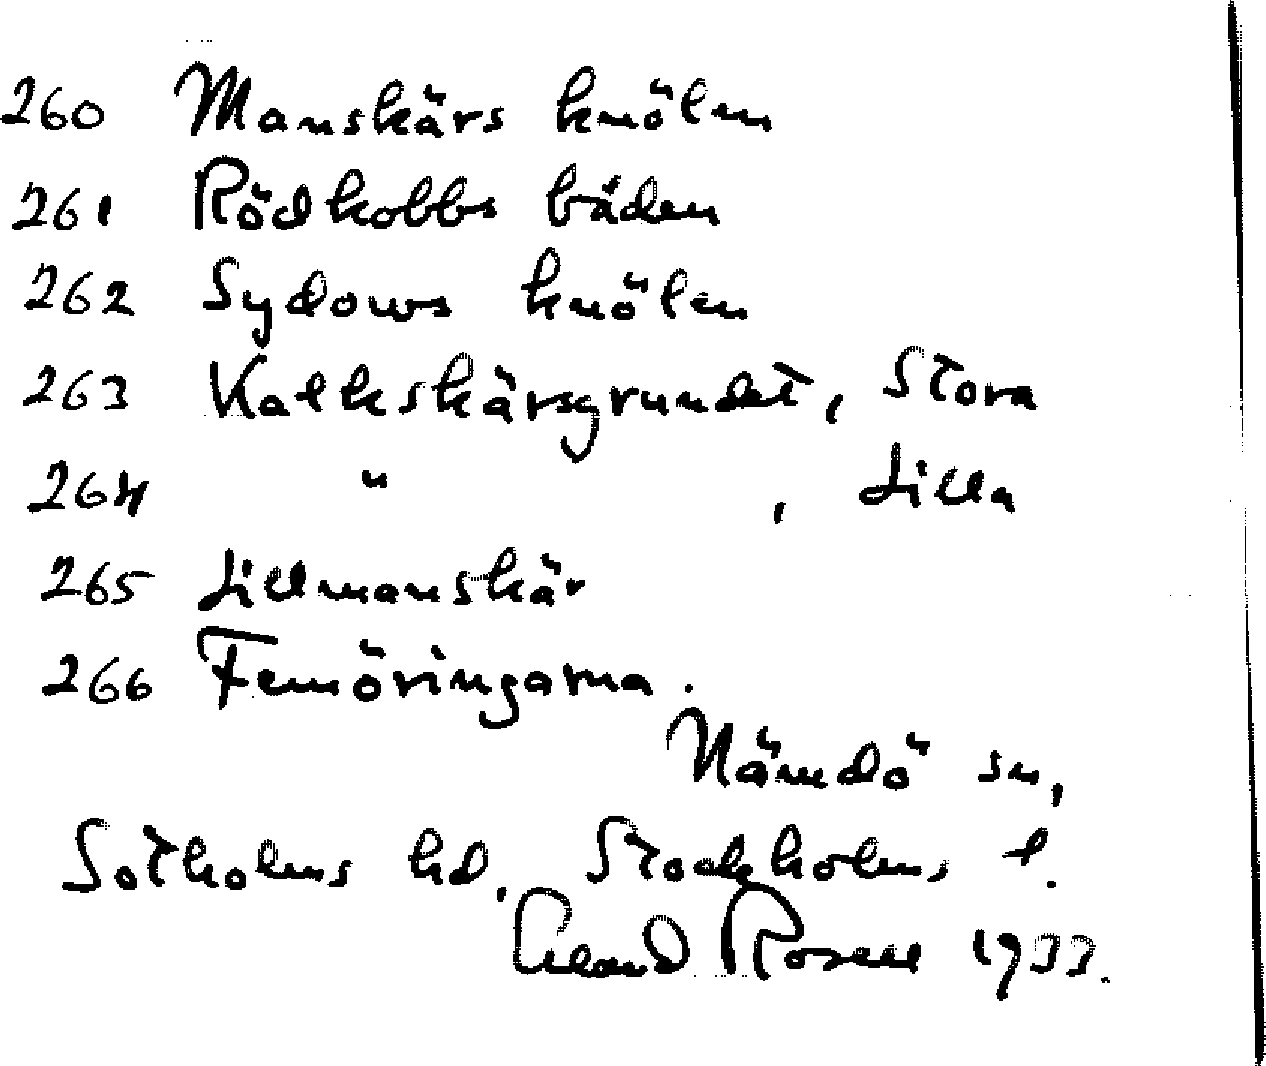 260 Manskärs knölen
261 Rödkobbs båden
262 Sydows knölen
263 Kalkskärsgrundet, Stora
264 " , Lilla
265 Lillmanskär
266 Femöringarna.
Nämdö sn,
Sotholms hd. Stockholms l.
Rosell 1933.